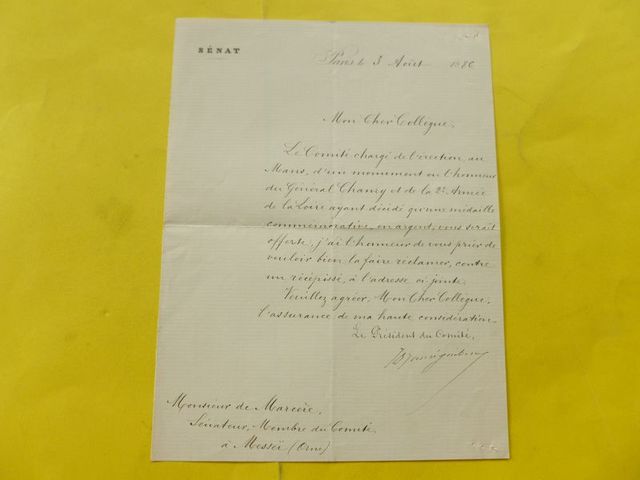 SÉNAT
Paris le 3 Août 1886
Mon Cher Collègue,
Le Comité chargé de l'érection, au
Mans, d'un monument en l'honneur
du Général Chanzy et de la 2e Armée
de la Loire ayant décidé qu'une médaille
commémorative, en argent, vous serait
offerte, j'ai l'honneur de vous prier de
vouloir bien la faire réclamer, contre
un récépissé, à l'adresse ci jointe.
Veuillez agréer, Mon Cher Collègue,
l'assurance de ma haute considération
Le Président du Comité,
Monsieur de Marcère,
Sénateur, Membre du Comité
à Messeï (Orne)